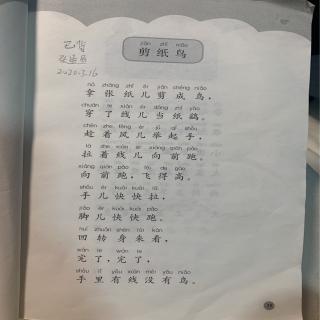 jiǎn zhǐ niǎo
剪纸鸟
已背
2020.3.16
ná zhāng zhǐ ér jiǎn chéng niǎo
拿张纸儿剪成鸟，
chuān le xiàn ér dāng zhǐ yào
穿了线儿当纸鹞。
chèn zhe fēng ér jǔ qǐ shǒu
趁着风儿举起手，
lā zhe xiàn ér xiàng qián pǎo
拉着线儿向前跑。
xiàng qián pǎo fēi de gāo
向前跑，飞得高。
shǒu ér kuài kuài lā
手儿快快拉，
jiǎo ér kuài kuài pǎo
脚儿快快跑。
huí zhuǎn shēn lái kàn
回转身来看，
wán le wán le
完了，完了，
shǒu lǐ yǒu xiàn méi yǒu niǎo
手里有线没有鸟。